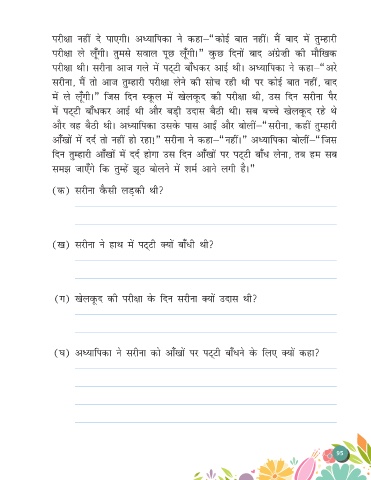 परीक्षा नहीं दे पाएगी। अध्यापिका ने कहा–“कोई बात नहीं। मैं बाद में तुम्हारी
परीक्षा ले लूँगी। तुमसे सवाल पूछ लूँगी।” कुछ दिनों बाद अंग्रेज़ी की मौखिक
परीक्षा थी। सरीना आज गले में पट्टी बाँधकर आई थी। अध्यापिका ने कहा–“अरे
सरीना, मैं तो आज तुम्हारी परीक्षा लेने की सोच रही थी पर कोई बात नहीं, बाद
में ले लूँगी।” जिस दिन स्कूल में खेलकूद की परीक्षा थी, उस दिन सरीना पैर
में पट्टी बाँधकर आई थी और बड़ी उदास बैठी थी। सब बच्चे खेलकूद रहे थे
और वह बैठी थी। अध्यापिका उसके पास आईं और बोलीं–“सरीना, कहीं तुम्हारी
आँखों में दर्द तो नहीं हो रहा।” सरीना ने कहा–“नहीं।” अध्यापिका बोलीं–“जिस
दिन तुम्हारी आँखों में दर्द होगा उस दिन आँखों पर पट्टी बाँध लेना, तब हम सब
समझ जाएँगे कि तुम्हें झूठ बोलने में शर्म आने लगी है।”
(क) सरीना कैसी लड़की थी?
(ख) सरीना ने हाथ में पट्टी क्यों बाँधी थी?
(ग) खेलकूद की परीक्षा के दिन सरीना क्यों उदास थी?
(घ) अध्यापिका ने सरीना को आँखों पर पट्टी बाँधने के लिए क्यों कहा?
95